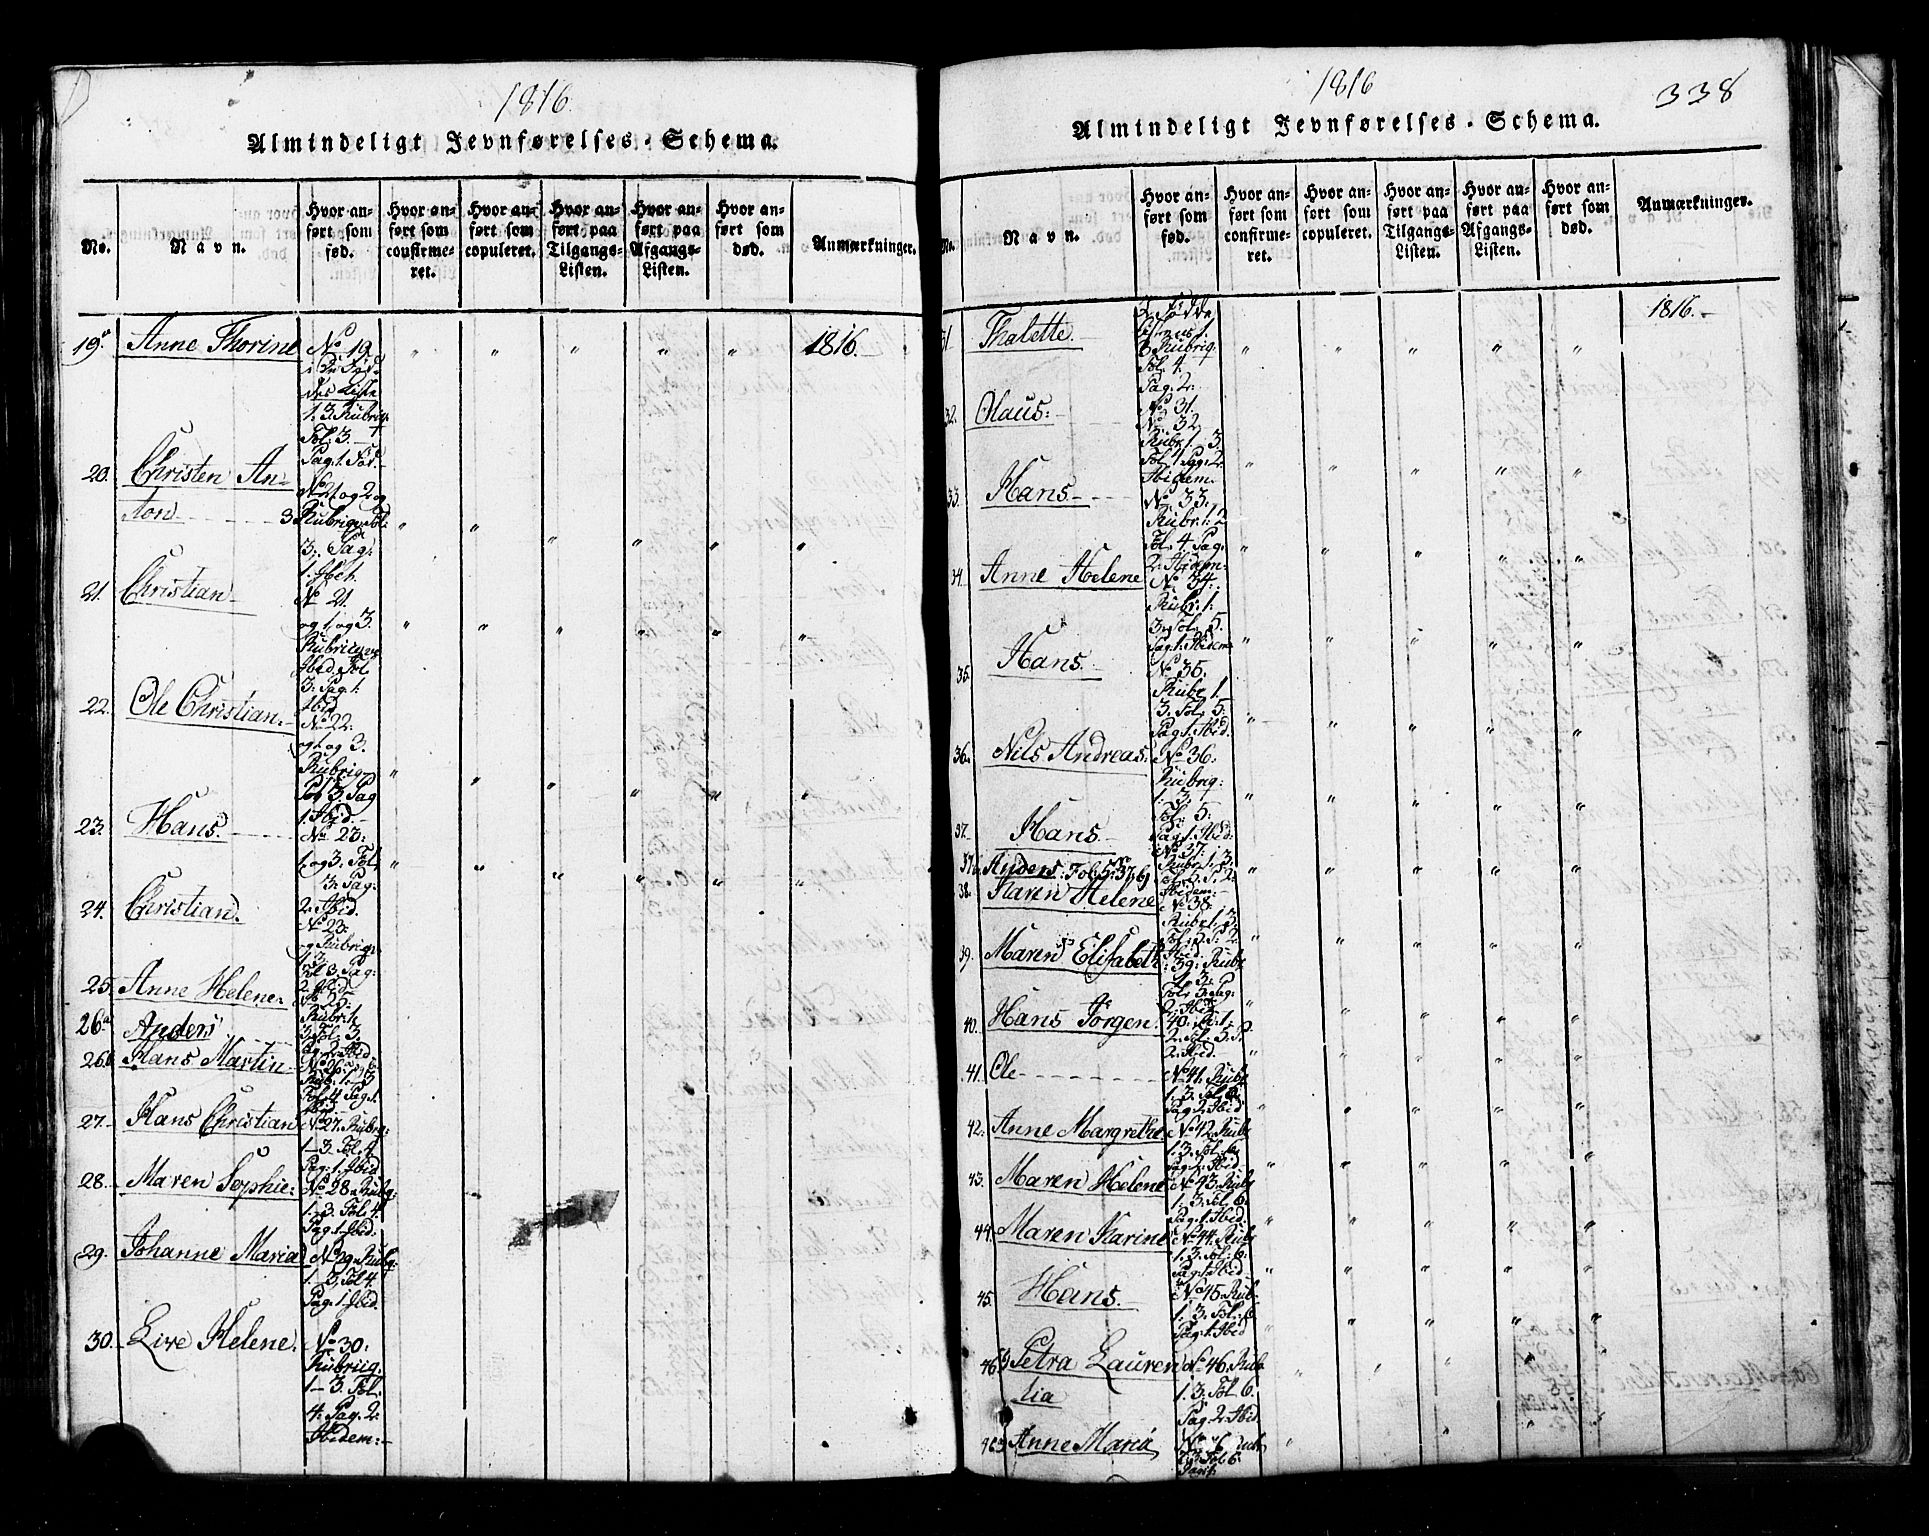 1816.
Almindeligt Jevnførelses-Schema.
No.
Navn.
Hvor anført som fød.
Hvor anført som confirmeret.
Hvor anført som copuleret.
Hvor anført paa Tilgangs-Listen.
Hvor anført paa Afgangs-Listen.
Hvor anført som død.
Anmærkninger.
19a Anne Thorine No 19 " " " " " 1816.
i De Fød-
des Liste
1. 3. Rubriq:
Fol: 3.
Pag. 1. Fød
20. Christen An-
ton
No 21 og 2 og
3 Rubriqv Fol:
3. Pag:
1. Ibid.
21. Christian No 21.
og 1. og 3.
Rubriqve
Ibid. Fol
3: Pag. 1.
Ibid
22. Ole Christian. No 22.
og 1. og 3.
Rubrig
Fol 3. Pag
1. Ibid.
23. Hans. No 23:
1. og 3. Fol
3. Pag:
2. Ibid.
24. Christian. No 23:
og Rubrigv
1. 3.
Fol 3. Pag:
2. Ibid
25. Anne Helene. No 25:
Rubr: 1.
3. Fol: 3.
26a Anders
Pag 2. Ibid.
26b Hans Martin No 26:
Rub: 1. 3
Fol: 4 Pag 1.
Ibid
27. Hans Christian No 27. Rubrq:
1-3. Fol. 4
Pag. 1. Ibid
28. Maren Sophie: No 28. Rubq:
1. 3. Fol. 4.
Pag. 1. Ibid.
29. Johanne Maria No 29. Rubq:
1. 3. Fol 4.
Pag. 1. Ibid.
30. Live Helene. No 30:
Rubriig.
1-3. Fol:
4. Pag. 2:
Ibidem:
1816
338
Almindeligt Jevnførelses-Schema.
No.
Navn.
Hvor anført som fød.
Hvor anført som confirmeret.
Hvor anført som copuleret.
Hvor anført paa Tilgangs-Listen.
Hvor anført paa Afgangs-Listen.
Hvor anført som død.
Anmærkninger.
1816.
31 Thalette.
Rubrig.
Fol. 4.
Pag. 2.
No 31.
32. Olaus: No. 32
Rubr 1. 3.
Fol 4 Pag. 2.
Ibidem.
33. Hans. No. 33.
Rubr. 1. 2
Fol. 4. Pag.
2. Ibidem.
34. Anne Helene No 34:
Rubr. 1:
3. Fol. 5.
Pag. 1. Ibidem
35. Hans. No 35.
Rubr 1.
3. Fol. 5:
Pag 1. Ibid.
36. Nils Andreas: No 36:
Rubrig:
1. 3.
Fol: 5:
Pag. 1. Ibid:
37. Hans. No 37:
Rubr. 1. 3.
Fol. 5. P. 2.
Ibidem:
37b Anders: Fol: 5: No 37 b
38. Karen Helene No 38:
Rube 1. 3.
Fol: 5. P. 2.
Ibid
39. Maren Elisabeth 39: Rubr
1. 3.
Fol: 5. Pag:
2. Ibid.
40. Hans Jörgen. 40. R. 1.
2. Fol. 5. P.
2. Ibid.
41. Ole No 41. Rubr
1. 3. Fol 6.
Pag 2. Ibid
42. Anne Margrethe No 42. Rubr
1. 3. Fol. 6.
Pag 2. Ibid
43. Maren Helene No 43. Rubr
1. 3. Fol. 6.
Pag. 1. Ibid.
44. Maren Karine No 44. Rubr
1. 3. Fol. 6.
Pag. 1. Ibid
45. Hans. No 45. Rub.
1. 3. Fol. 6
Pag. 1. Ibid
46a Petra Lauren No 46. Rub
tia 1. 3. Fol 6.
Pag. 2. Ibid.
46b Anne Maria
3. Fol 6.